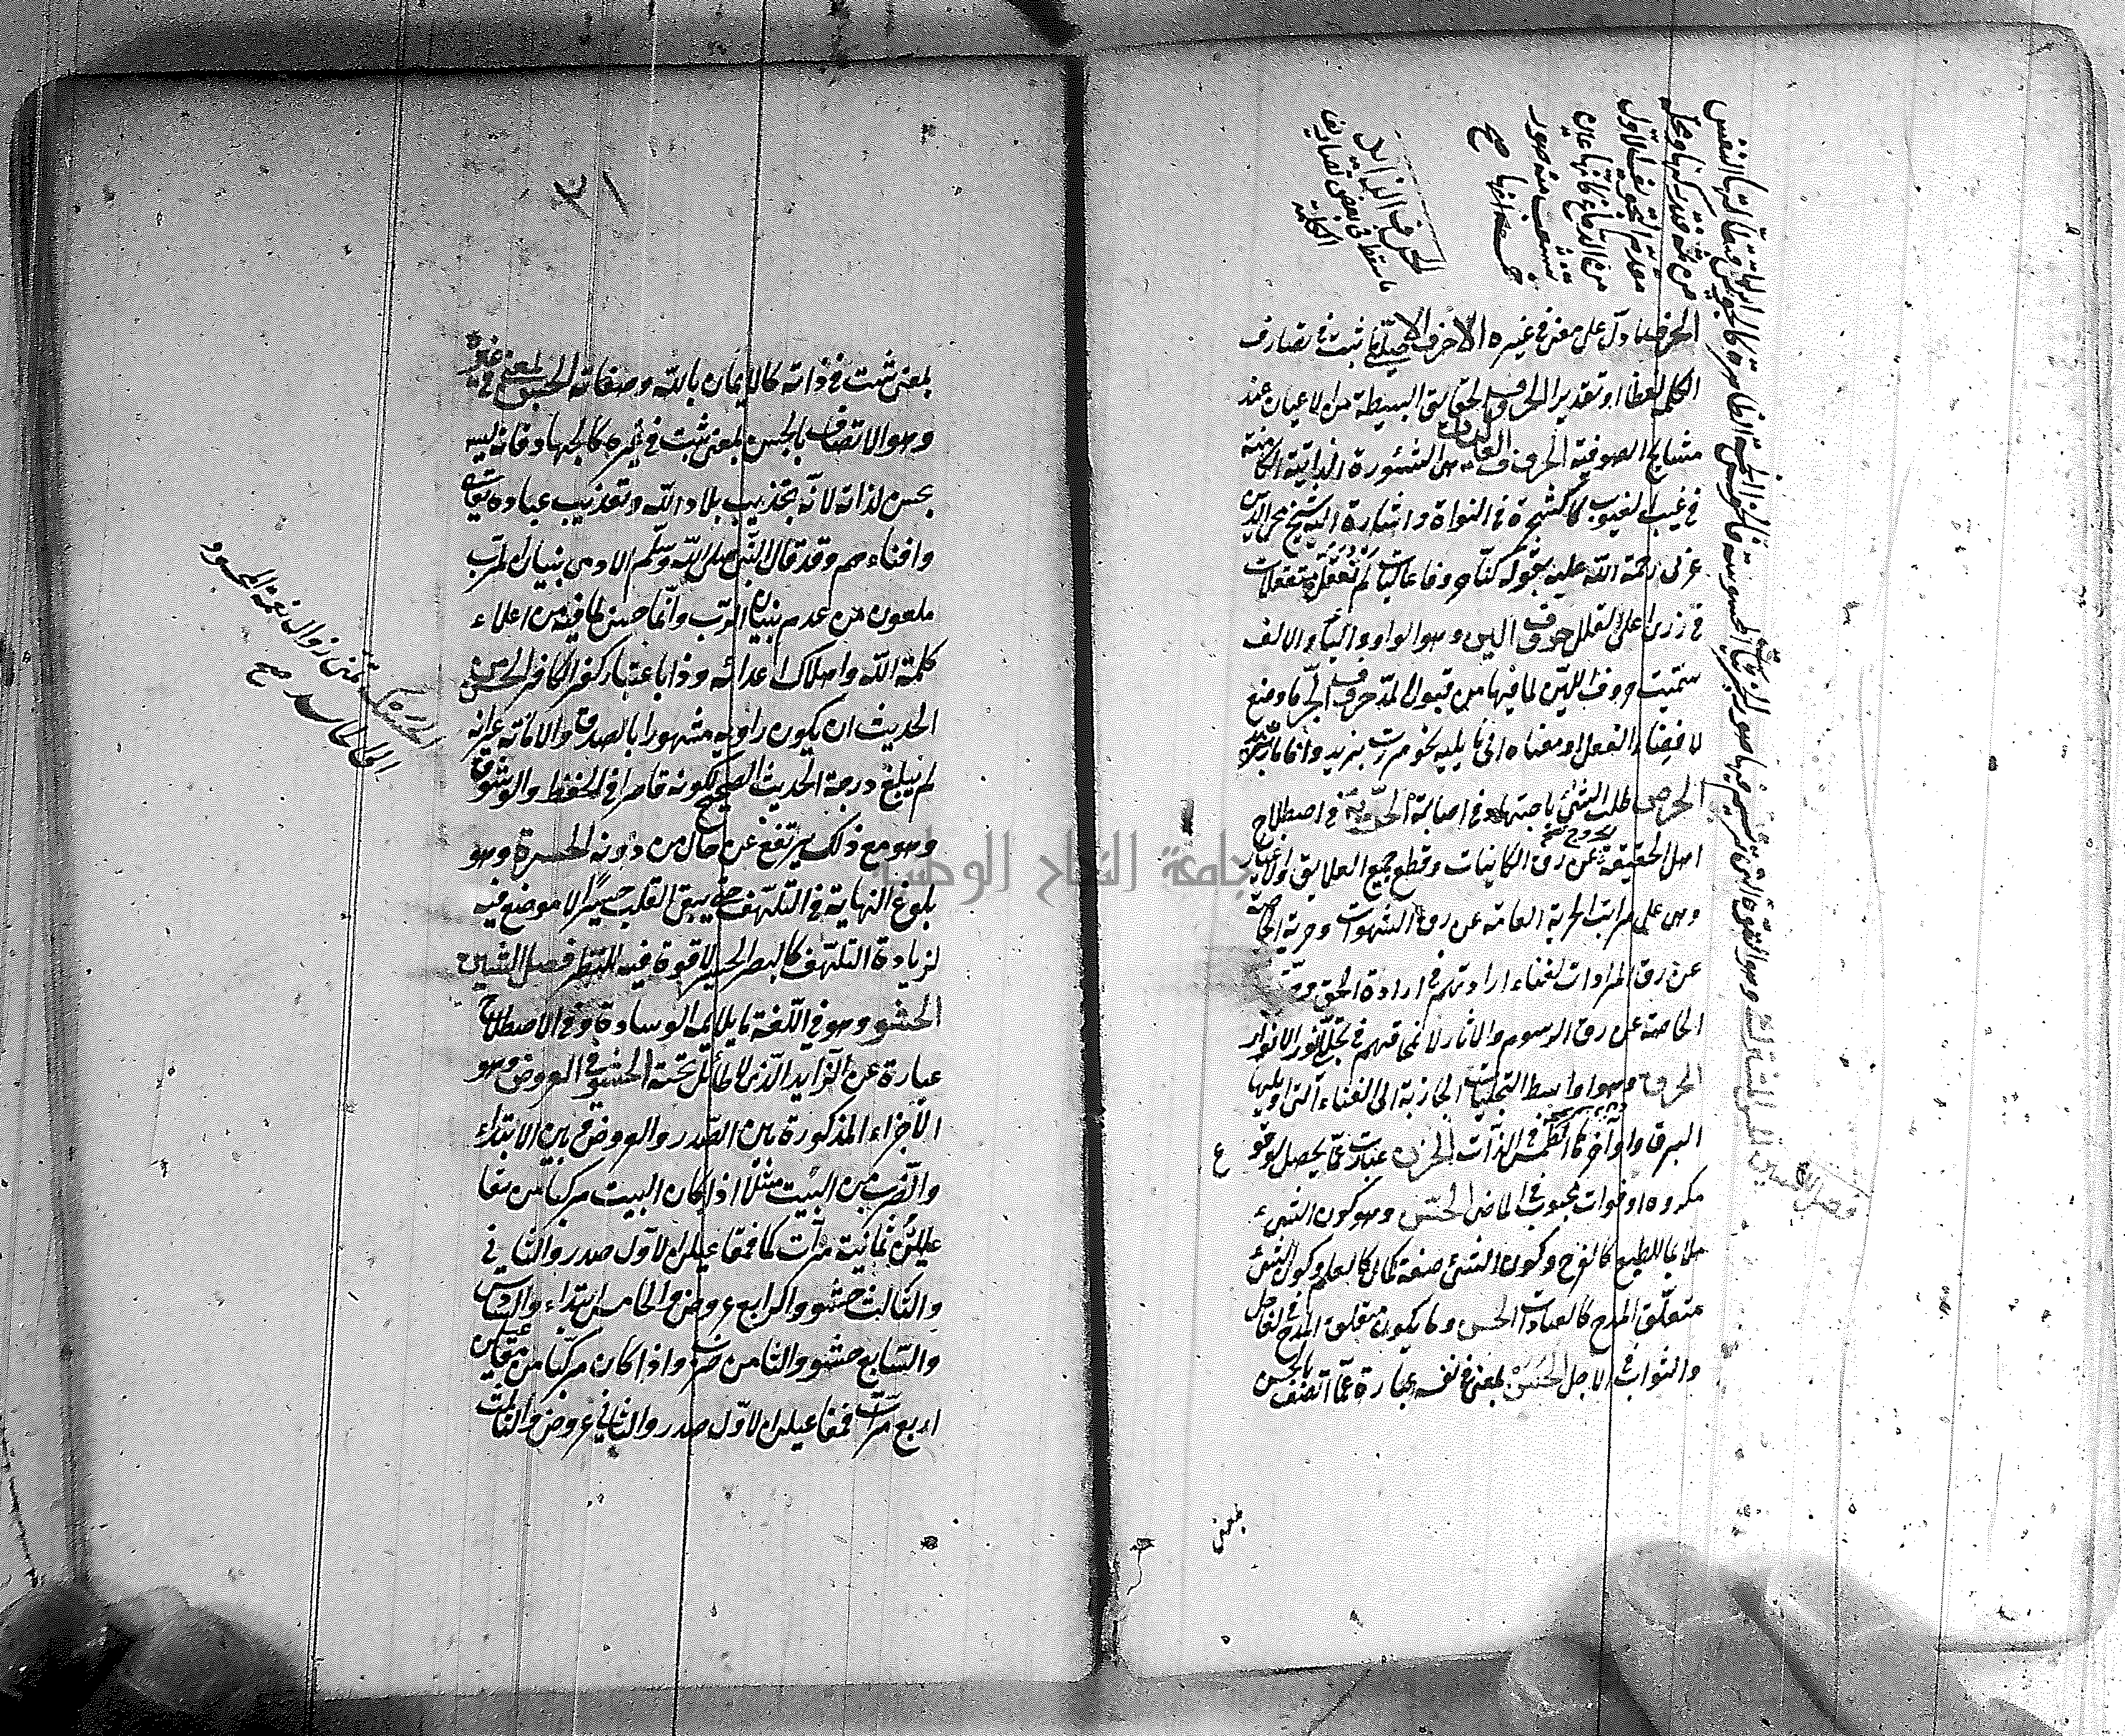 الحرف ما دل على معنى في غيره الأحرف الأصلي ما ثبت في تصاريف
الكلمة لفظا او تقديرا الحروف الحقائق البسيطة من الاعيان عند
مشايخ الصوفية الحروف العاليات هي الشئون الذاتية الكامنة
في غيب الغيوب كالشجرة في النواة واشارة اليه شيخ محي الدين
عربي رحمة الله عليه بقوله كنا حروفا عاليات لم نقل متعلقات
في ذرى اعلى القلل حروف اللين وهو الواو والياء والالف
سميت حروف اللين لما فيها من قبول المد حروف الجر ما وضع
لافضاء الفعل او معناه الى ما يليه نحو مررت بزيد وانا مار بزيد
الحرص طلب الشئ باجتهاد في اصابة الحرية في اصطلاح
اهل الحقيقة الخروج عن رق الكاينات وقطع جميع العلايق والاغيار
وهي على مراتب الحرية العامة عن رق الشهوات وحرية الخاصة
عن رق المرادات لفناء ارادتهم في ارادة الحق
الخاصة عن رق الرسوم والاثار لانمحاقهم في تجلي نور الانوار
الحرق وهو اواسط التجليات الجاذبة الى الفناء التي اوايلها
البرق واواخرها الطمس في الذات الحزن عبارت عما يحصل لوقوع
مكروه او فوات محبوب في الماضي الحسن وهو كون الشئ
ملايما للطبع كالفرح وكون الشئ صفة كمال كالعلم وكون الشئ
متعلق المدح كالعبادات الحسن وما يكون متعلق المدح في العاجل
والثواب في الاجل الحسن لمعنى في نفسه عبارة عما اتصف بالحسن
لمعنى
٣١
لمعنى ثبت في ذاته كالايمان بالله وصفاته الحسن لمعنى في غيره
وهو الاتصاف بالحسن لمعنى ثبت في غيره كالجهاد فانه ليس
بحسن لذاته لانه تخريب بلاد الله وتعذيب عباده
وافناءهم وقد قال النبي صلى الله وسلم الادمي بنيان الرب
ملعون من هدم بنيان الرب وانما حسن لما فيه من اعلاء
كلمة الله واهلاك اعدائه وذا باعتبار كفر الكافر الحسن من
الحديث ان يكون راويه مشهورا بالصدق والامانة غير انه
لم يبلغ درجة الحديث الصحيح لكونه قاصرا في الحفظ والوثوق
وهو مع ذلك يرتفع عن حال من دونه الحسرة وهو
بلوغ النهاية في التلهف حتى يبقى القلب حسيرا لا موضع فيه
لزيادة التلهف كالبصر الحسير لا قوة فيه للنظر فصل الشين
الحشو وهو في اللغة ما يملا به الوسادة وفي الاصطلاح
عبارة عن الزايد الذي لا طائل تحته الحشو في العروض وهو
الأجزاء المذكورة بين الصدر والعروض وبين الابتداء
والضرب من البيت مثلا اذا كان البيت مركبا من مفا
عيلن ثمانيت مرات كان مفاعيلن الاول صدر والثاني
والثالث حشو والرابع عروض والخامس ابتداء والسادس
والسابع حشو والثامن ضرب واذا كان مركبا من مفاعيلن
اربع مرات فمفاعيلن الاول صدر والثاني عروض والثالث
تمنى زوال نعمة المحسود
الى الحاسد صح
جامعة النجاح الوطنية